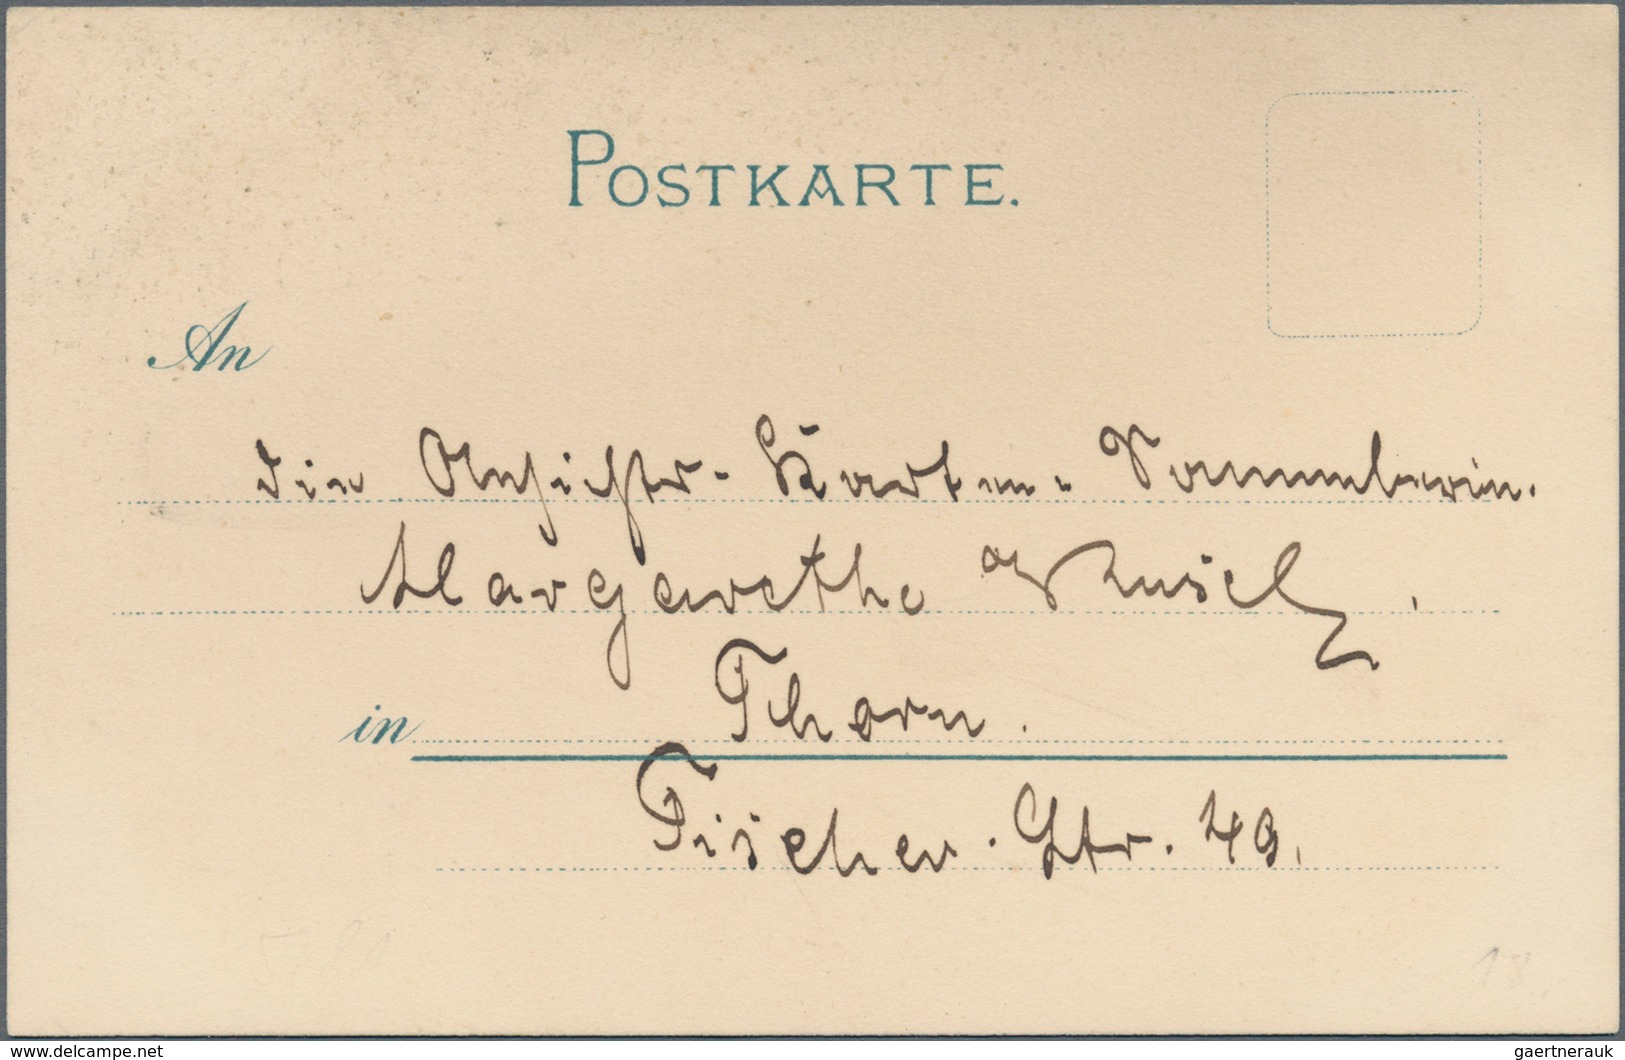 POSTKARTE.
An
die Ansichts-Karten-Sammlerin.
Margarethe
in Thorn.
Fischer-Str. 49.
delcampe.net
gaertnerauk